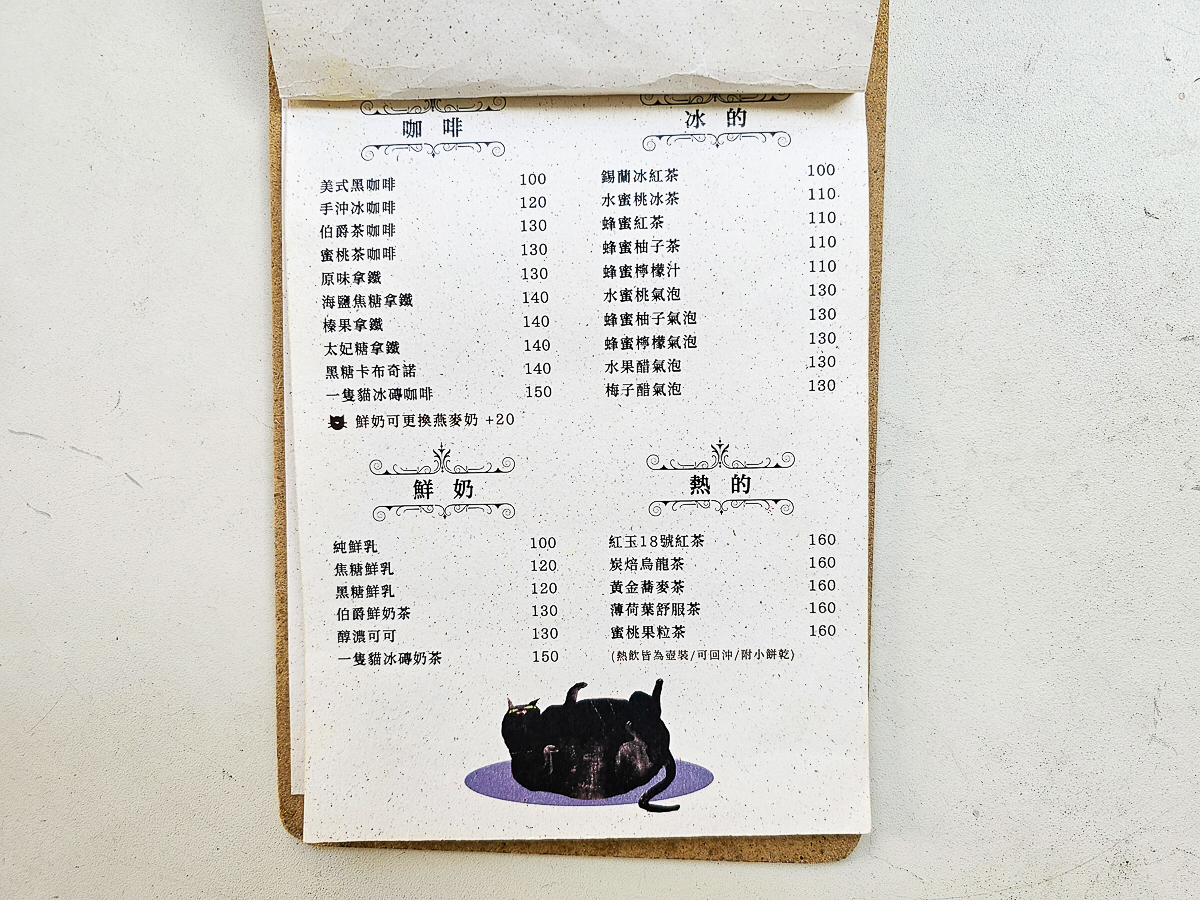 咖啡
美式黑咖啡 100
手沖冰咖啡 120
伯爵茶咖啡 130
蜜桃茶咖啡 130
原味拿鐵 130
海鹽焦糖拿鐵 140
榛果拿鐵 140
太妃糖拿鐵 140
黑糖卡布奇諾 140
一隻貓冰磚咖啡 150
鮮奶可更換燕麥奶 +20
鮮奶
純鮮乳 100
焦糖鮮乳 120
黑糖鮮乳 120
伯爵鮮奶茶 130
醇濃可可 130
一隻貓冰磚奶茶 150
冰的
錫蘭冰紅茶 100
水蜜桃冰茶 110
蜂蜜紅茶 110
蜂蜜柚子茶 110
蜂蜜檸檬汁 110
水蜜桃氣泡 130
蜂蜜柚子氣泡 130
蜂蜜檸檬氣泡 130
水果醋氣泡 130
梅子醋氣泡 130
熱的
紅玉18號紅茶 160
炭焙烏龍茶 160
黃金蕎麥茶 160
薄荷葉舒服茶 160
蜜桃果粒茶 160
(熱飲皆為壺裝/可回沖/附小餅乾)